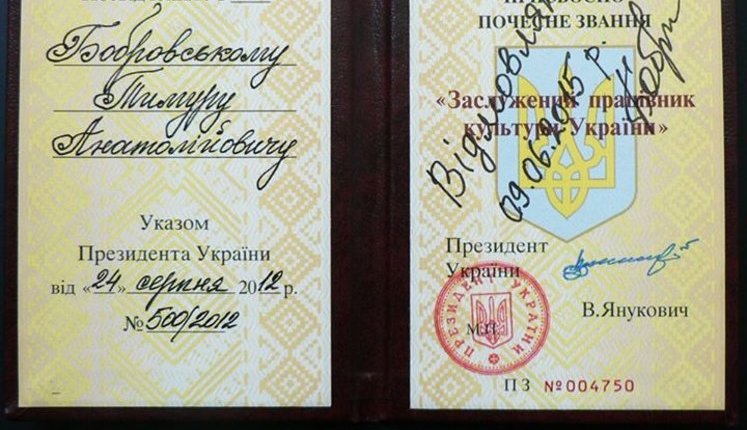 Бобровському
Тимуру
Анатолійовичу
Указом
Президента України
від «24» серпня 2012 р.
№ 500/2012
ПОЧЕСНЕ ЗВАННЯ
«Заслужений працівник
культури України»
Відмовляюсь
09.06.2015 р.
Президент
України
В.Янукович
М.П.
ПРЕЗИДЕНТ УКРАЇНИ
ПЗ №004750